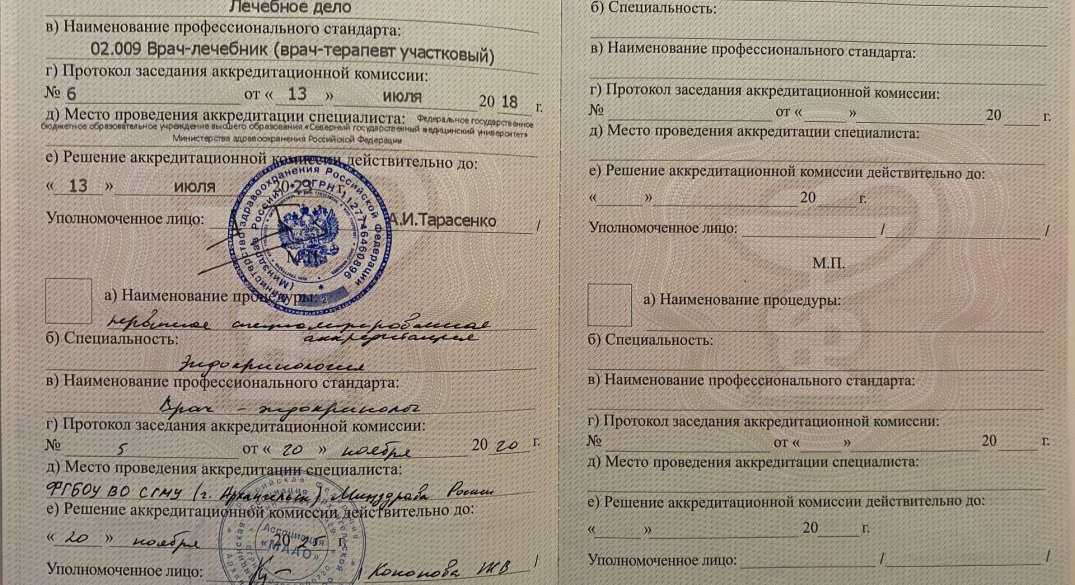 Лечебное дело
в) Наименование профессионального стандарта:
02.009 Врач-лечебник (врач-терапевт участковый)
г) Протокол заседания аккредитационной комиссии:
№ 6 от « 13 » июля 20 18 г.
д) Место проведения аккредитации специалиста: Федеральное государственное
бюджетное образовательное учреждение высшего образования «Северный государственный медицинский университет»
Министерства здравоохранения Российской Федерации
е) Решение аккредитационной комиссии действительно до:
« 13 » июля 20 23 г.
Уполномоченное лицо: А.И.Тарасенко /
М.П.
Министерство здравоохранения Российской Федерации
(Минздрав России) * ОГРН 1127746460896
а) Наименование процедуры:
первичная специализированная
аккредитация
б) Специальность:
Эндокринология
в) Наименование профессионального стандарта:
Врач - эндокринолог
г) Протокол заседания аккредитационной комиссии:
№ 5 от « 20 » ноября 20 20 г.
д) Место проведения аккредитации специалиста:
ФГБОУ ВО СГМУ (г. Архангельск) Минздрава России
е) Решение аккредитационной комиссии действительно до:
« 20 » ноября 20 25 г.
Ассоциация
«МААО»
Уполномоченное лицо: / Кононова ЖВ /
б) Специальность:
в) Наименование профессионального стандарта:
г) Протокол заседания аккредитационной комиссии:
№ от « » 20 г.
д) Место проведения аккредитации специалиста:
е) Решение аккредитационной комиссии действительно до:
« » 20 г.
Уполномоченное лицо: / /
М.П.
а) Наименование процедуры:
б) Специальность:
в) Наименование профессионального стандарта:
г) Протокол заседания аккредитационной комиссии:
№ от « » 20 г.
д) Место проведения аккредитации специалиста:
е) Решение аккредитационной комиссии действительно до:
« » 20 г.
Уполномоченное лицо: / /